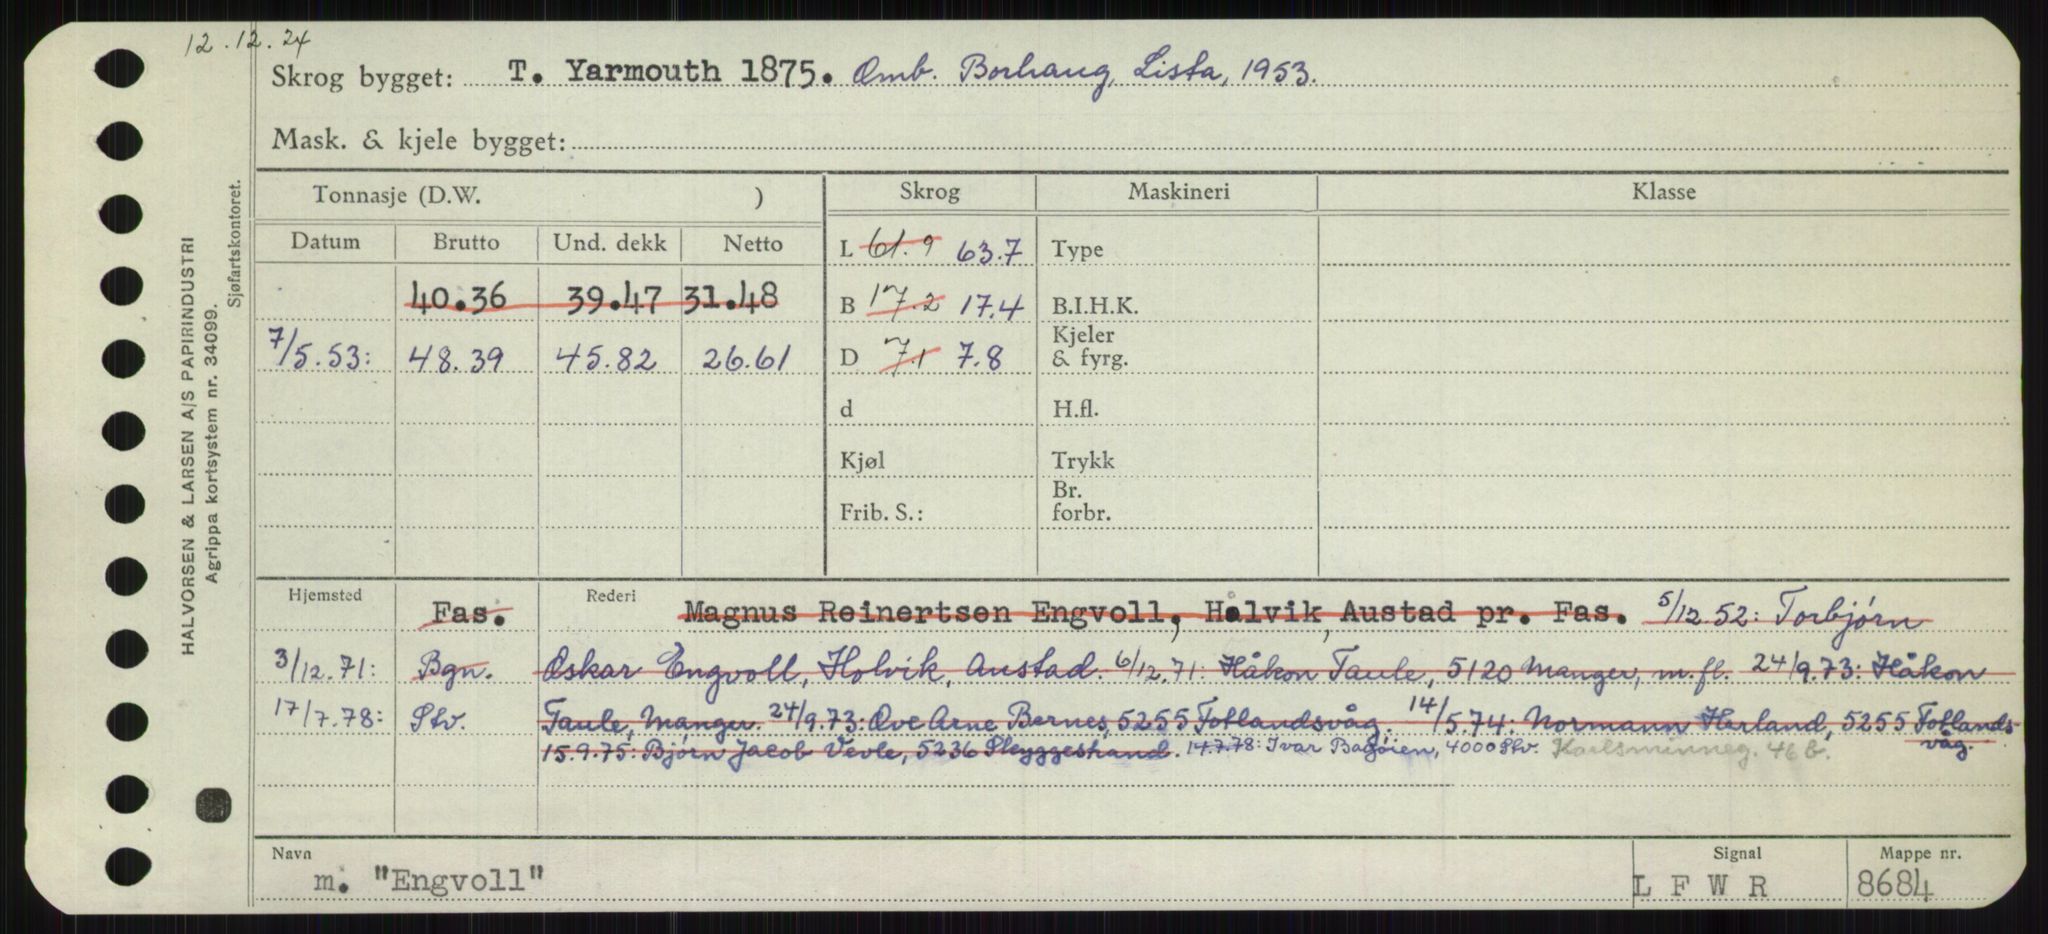 12.12.24
Skrog bygget: T. Yarmouth 1875. Omb. Borhaug, Lista, 1953.
Mask. & kjele bygget:
Tonnasje (D.W. )
Skrog
Maskineri
Klasse
Datum Brutto Und. dekk Netto
L 61.9 63.7
Type
40.36 39.47 31.48
B 17.2 17.4
B.I.H.K.
7/5.53: 48.39 45.82 26.61
D 7.1 7.8
Kjeler
& fyrg.
d
H.fl.
Kjøl
Trykk
Frib. S.:
Br.
forbr.
Hjemsted Fas. Rederi Magnus Reinertsen Engvoll, Halvik, Austad pr. Fas. 5/12.52: Torbjørn
3/12.71: Bgn. Oskar Engvoll, Holvik, Austad. 6/12.71: Håkon Taule, 5120 Manger, m.fl. 24/9.73: Håkon
17/7.78: Stv. Taule, Manger. 24/9.73: Ove Arne Bernes, 5255 Fotlandsvåg. 14/5.74: Normann Herland, 5255 Fotlands-
våg.
15.9.75: Bjørn Jacob Vevle, 5236 14.7.78: Ivar Bagøien, 4000 Stv. Karlsminneg. 46 b.
Navn
m. "Engvoll"
Signal
L F W R
Mappe nr.
8684
HALVORSEN & LARSEN A/S PAPIRINDUSTRI
Agrippa kortsystem nr. 34099.
Sjøfartskontoret.